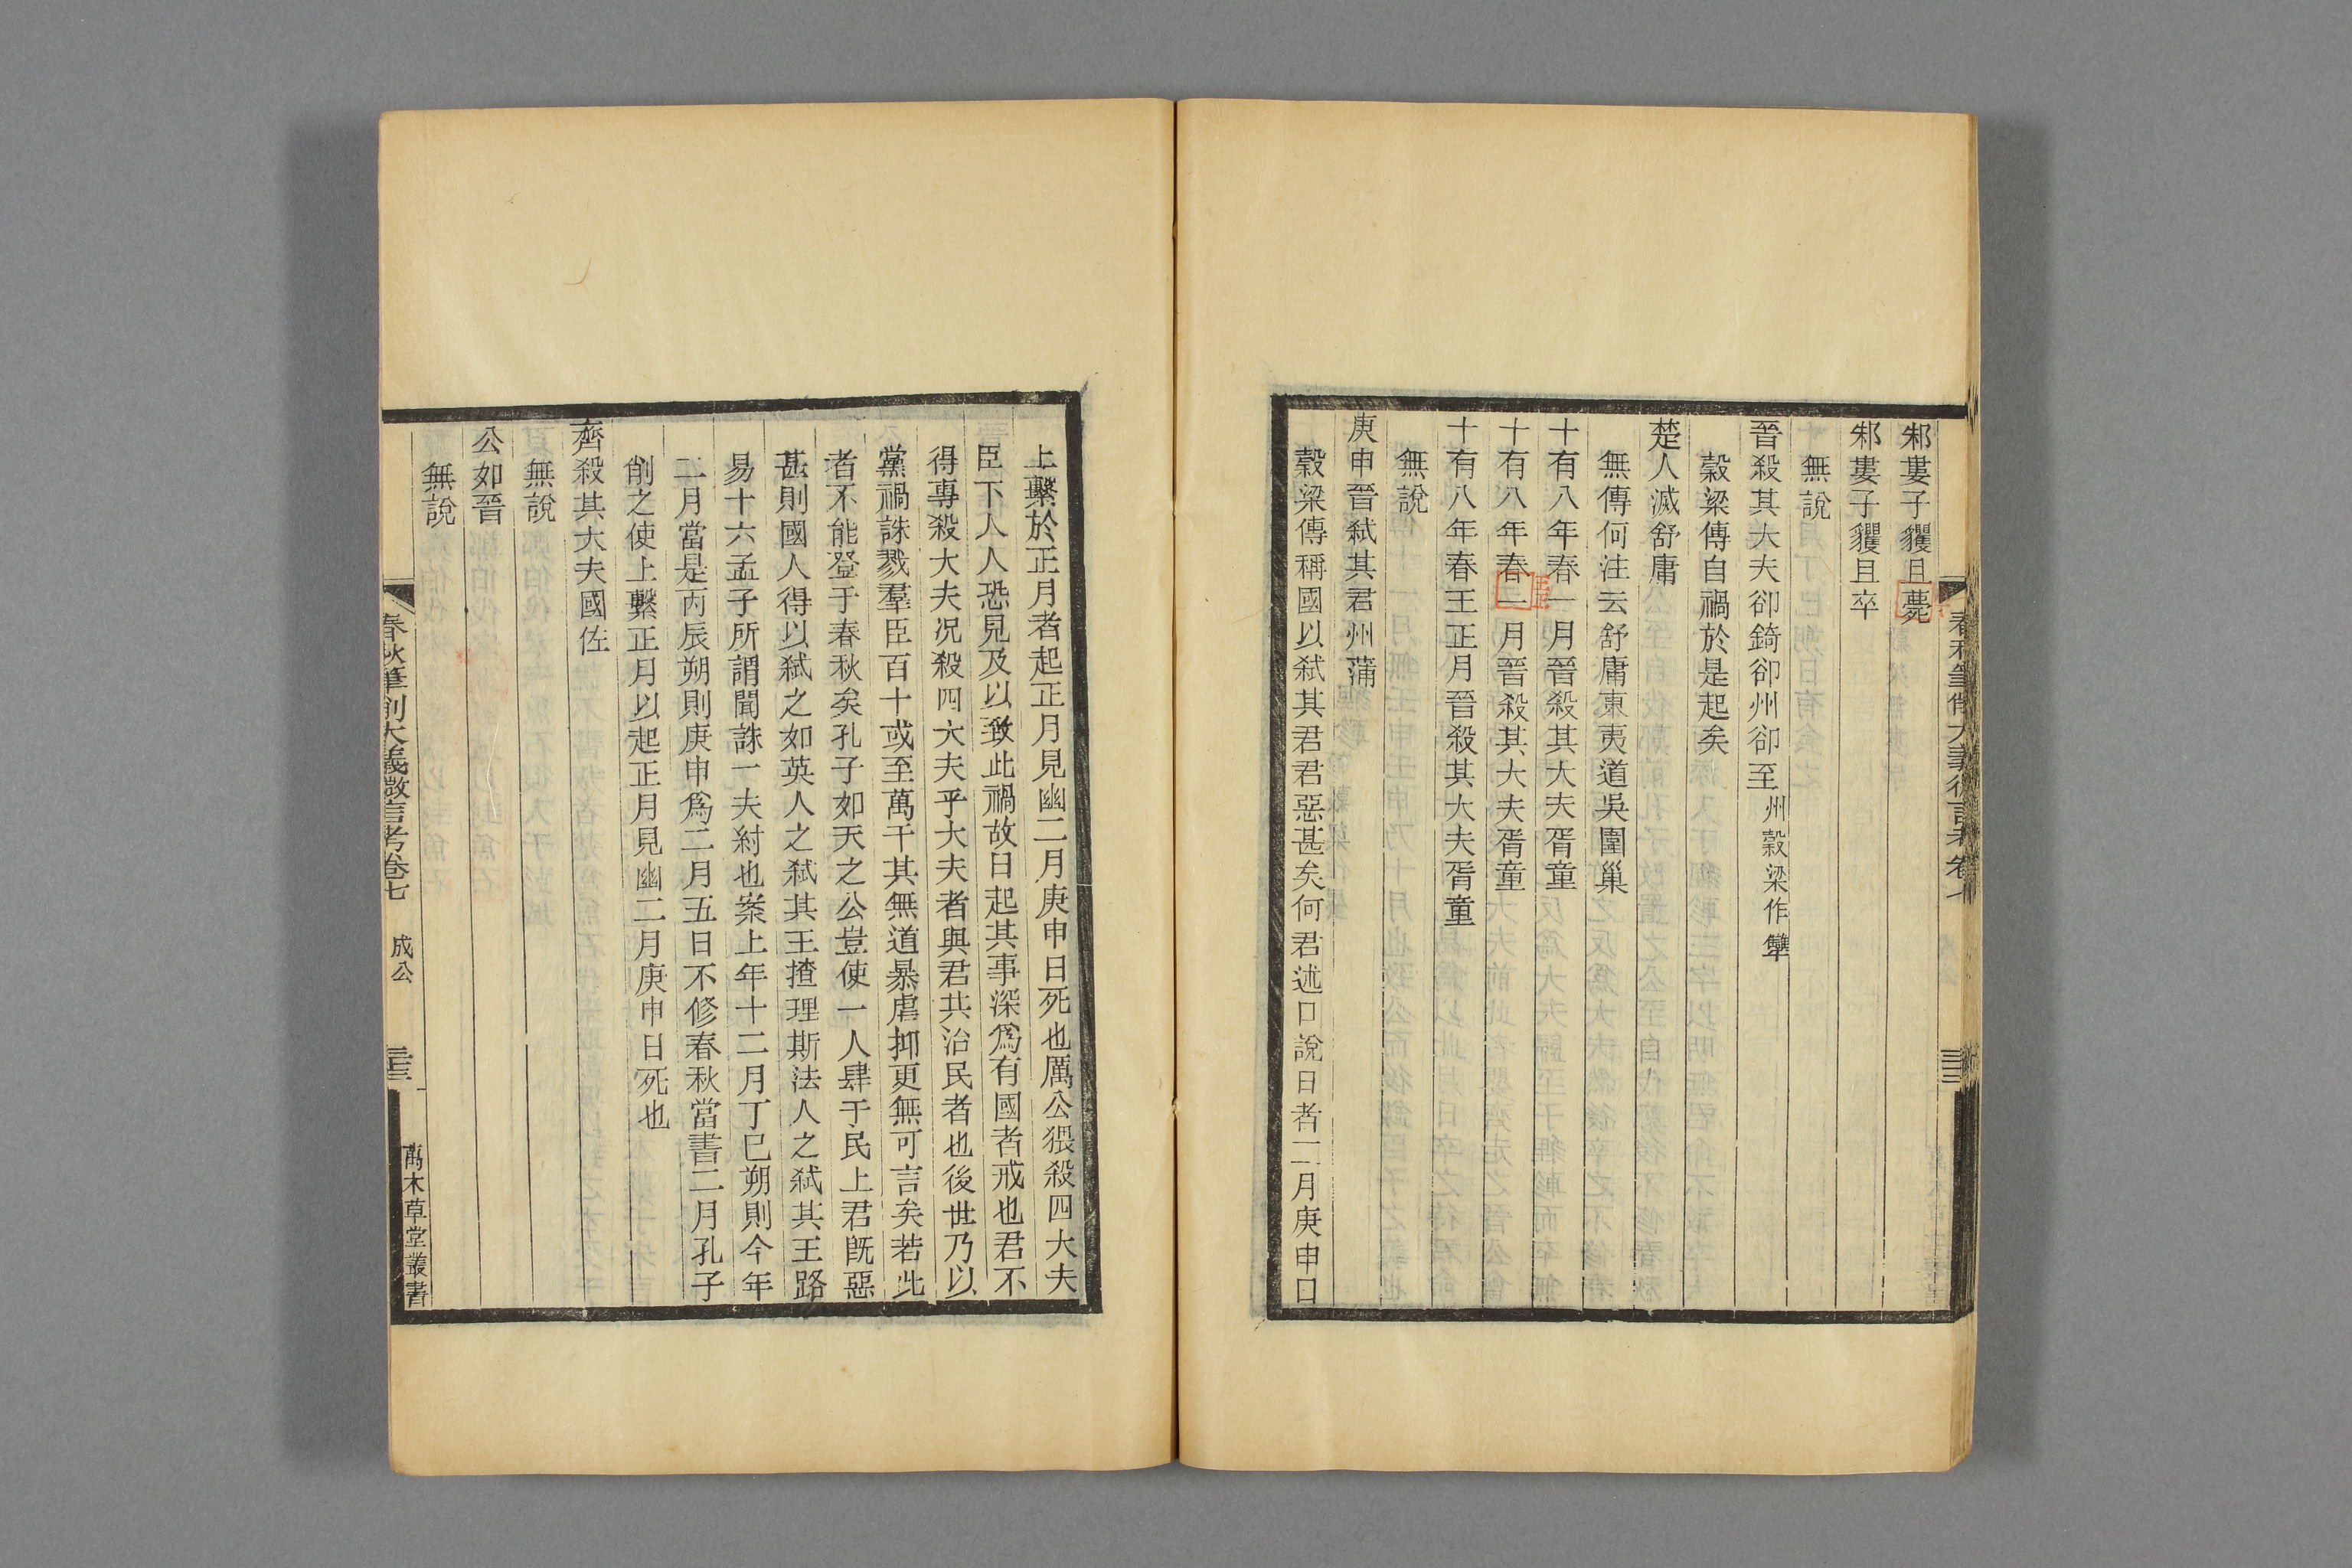 邾婁子貜且薨
邾婁子貜且卒
無說
晉殺其大夫郤錡郤州郤至州穀梁作犫
穀梁傳自禍於是起矣
楚人滅舒庸
無傳何注云舒庸東夷道吳圍巢
十有八年春一月晉殺其大夫胥童
王正
十有八年春一月晉殺其大夫胥童
十有八年春王正月晉殺其大夫胥童
無說
庚申晉弑其君州蒲
穀梁傳稱國以弑其君君惡甚矣何君述口說日者二月庚申日
春秋筆削大義微言考卷七
上繫於正月者起正月見幽二月庚申日死也厲公猥殺四大夫
臣下人人恐見及以致此禍故日起其事深為有國者戒也君不
得專殺大夫况殺四大夫乎大夫者與君共治民者也後世乃以
黨禍誅戮羣臣百十或至萬千其無道暴虐抑更無可言矣若此
者不能登于春秋矣孔子如天之公豈使一人肆于民上君既惡
甚則國人得以弑之如英人之弑其王揸理斯法人之弑其王路
易十六孟子所謂聞誅一夫紂也案上年十二月丁巳朔則今年
二月當是丙辰朔則庚申為二月五日不修春秋當書二月孔子
削之使上繫正月以起正月見幽二月庚申日死也
齊殺其大夫國佐
無說
公如晉
無說
春秋筆削大義微言考卷七 成公 萬木草堂叢書